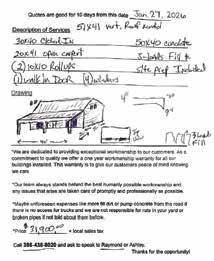 Quotes are good for 10 days from this date Jan 27, 2026
Description of Services 51x41 vert. Roof
30x40 Closed In 50x40 concrete
20x41 open carport 3-loads Fill
(2) 10x10 Rollups Site Prep Included
(1) walk In Door (4) windows
Drawing
4"
"We are dedicated to providing exceptional workmanship to our customers. As a
commitment to quality we offer a one year workmanship warranty for all our
buildings installed. This warranty is to give our customers peace of mind knowing
we care.
"Our team always stands behind the best humanly possible workmanship and
any issues that arise are taken care of promptly and professionally as possible.
"Maybe unforeseen expenses like more fill dirt or pump concrete from the road if
there is no access for trucks and we are not responsible for rate in your yard or
broken pipes if not told about them before.
Price $ 31,900.00 + local sales tax
Call 386-438-8020 and ask to speak to Raymond or Ashley.
Thanks for the opportunity!